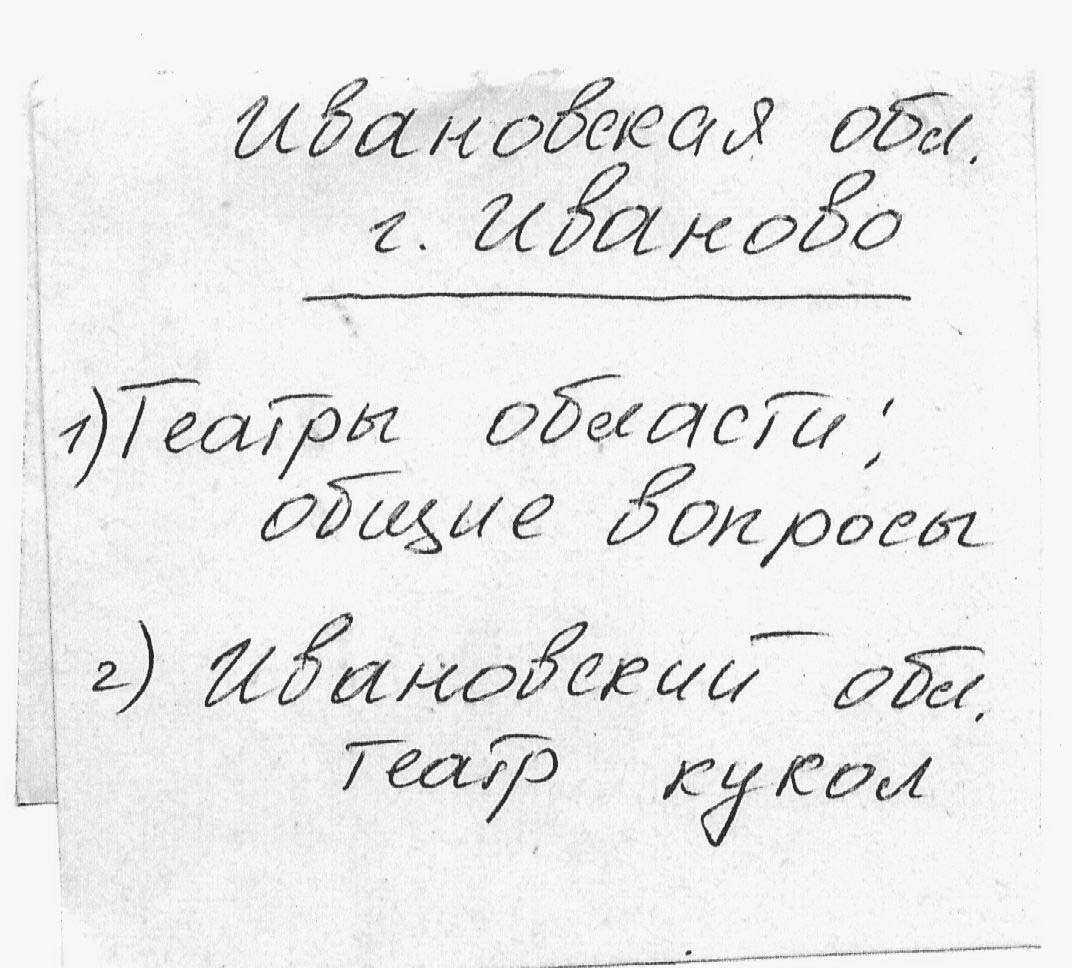 Ивановская обл.
г. Иваново
1) Театры области;
общие вопросы
2) Ивановский обл.
театр кукол